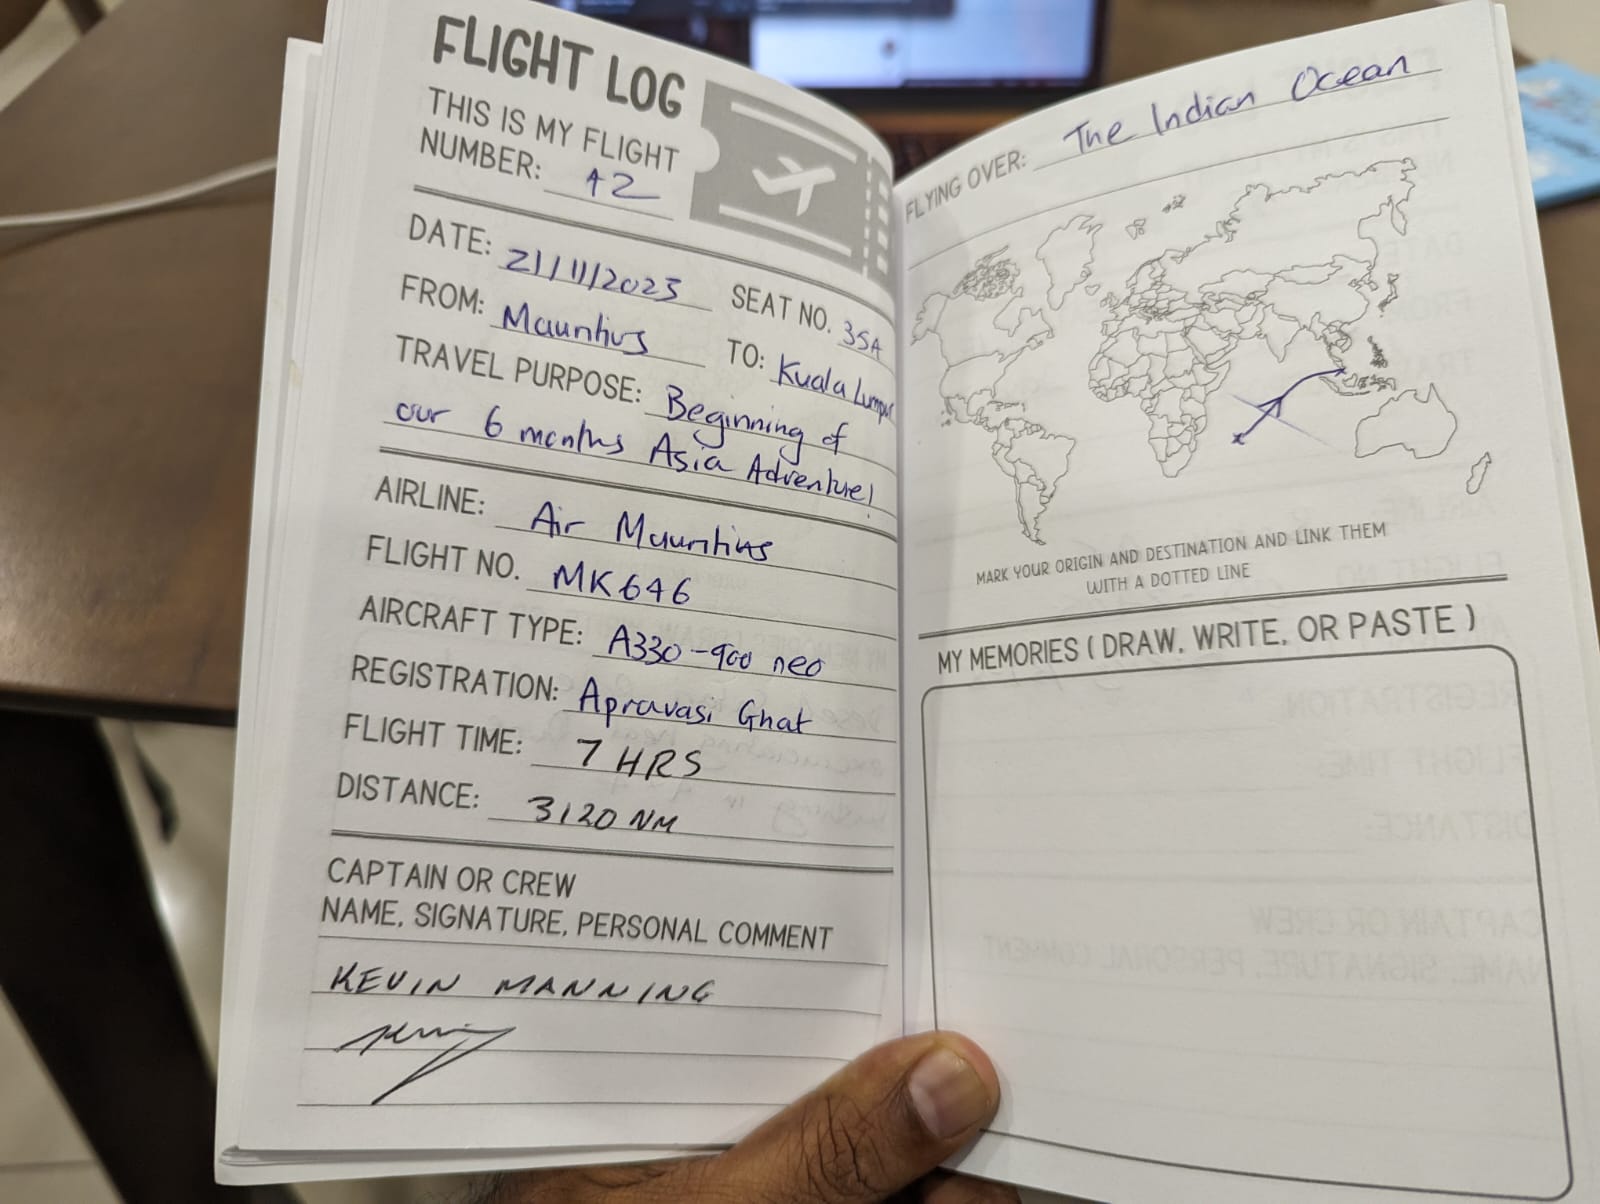 FLIGHT LOG
THIS IS MY FLIGHT
NUMBER: 42
DATE: 21/11/2023 SEAT NO. 35A
FROM: Mauritius TO: Kuala Lumpur
TRAVEL PURPOSE: Beginning of
our 6 months Asia Adventure!
AIRLINE: Air Mauritius
FLIGHT NO. MK646
AIRCRAFT TYPE: A330-900 neo
REGISTRATION: Apravasi Ghat
FLIGHT TIME: 7 HRS
DISTANCE: 3120 NM
CAPTAIN OR CREW
NAME, SIGNATURE, PERSONAL COMMENT
KEVIN MANNING
FLYING OVER: The Indian Ocean
MARK YOUR ORIGIN AND DESTINATION AND LINK THEM
WITH A DOTTED LINE
MY MEMORIES ( DRAW, WRITE, OR PASTE )